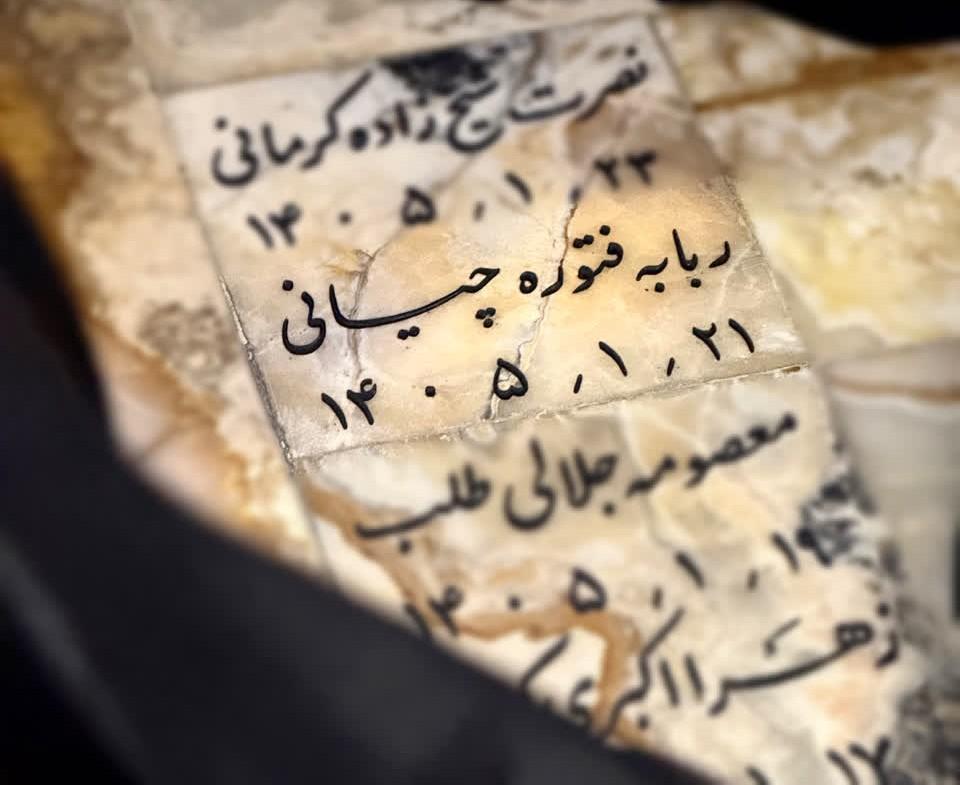 نصرت شیخ زاده کرمانی
۲۳ , ۱ , ۱۴۰۵
ربابه فتوره چیانی
۲۱ , ۱ , ۱۴۰۵
معصومه جلالی طلب
۱۹ , ۱ , ۱۴۰۵
زهرا اکبری
۱۷